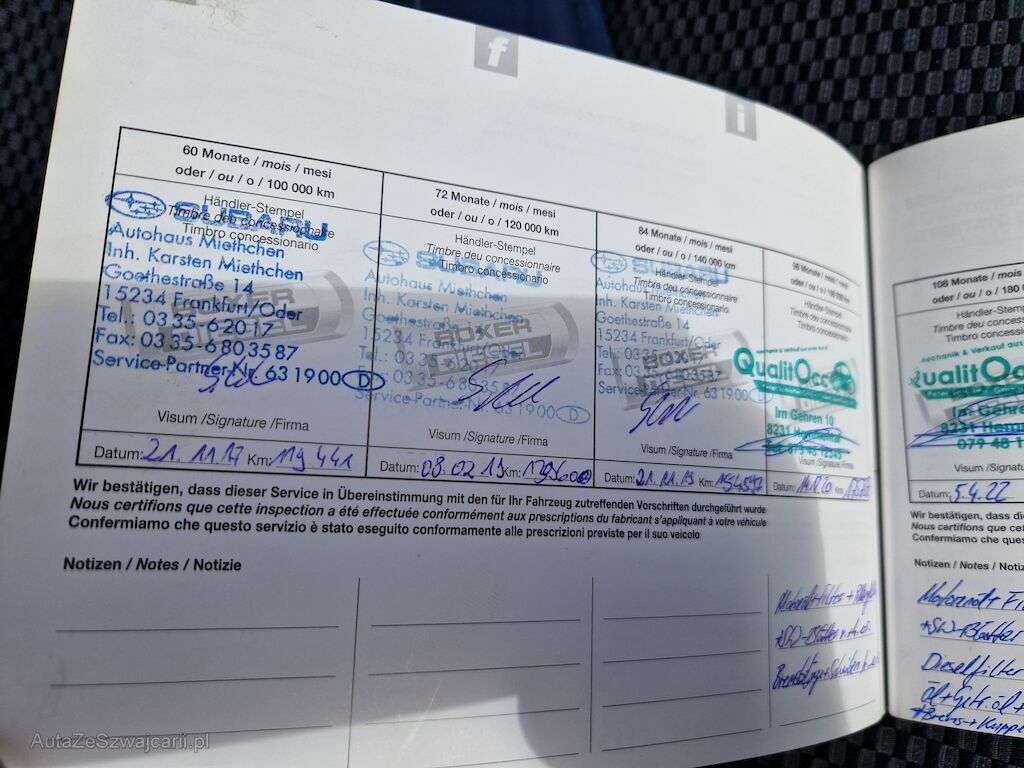 f
i
60 Monate / mois / mesi
oder / ou / o / 100 000 km
Händler-Stempel
Timbre deu concessionnaire
Timbro concessionario
SUBARU
Autohaus Miethchen
Inh. Karsten Miethchen
Goethestraße 14
15234 Frankfurt/Oder
Tel.: 03 35-6 20 17
Fax: 03 35-6 80 35 87
Service-Partner-Nr. 63 1900 D
BOXER
Visum /Signature /Firma
Datum: 21.11.17 Km: 119 441
72 Monate / mois / mesi
oder / ou / o / 120 000 km
Händler-Stempel
Timbre deu concessionnaire
Timbro concessionario
SUBARU
Autohaus Miethchen
Inh. Karsten Miethchen
Goethestraße
15234 Frankfurt/Oder
Tel.: 03 35
Fax: 03 35-6 80 35 8
Service-Partner-Nr. 63 1900 D
BOXER
Visum /Signature /Firma
Datum: 08.02.19 Km:
84 Monate / mois / mesi
oder / ou / o / 140 000 km
Händler-Stempel
Timbre deu concessionnaire
Timbro concessionario
SUBARU
Autohaus Miethchen
Inh. Karsten Miethchen
Goethestraße 14
15234 Frankfurt/Oder
Tel.: 03 35
Fax: 03 35-6 80 35 87
Service-Partner-Nr. 63 1900 D
BOXER
Visum /Signature /Firma
Datum: 21.11.19 Km:
96 Monate / mois / mesi
oder / ou / o /
Händler-Stempel
Timbre deu concessionnaire
Timbro concessionario
QualitOcc
Im Gehren 10
8231 Hemmental
Visum /Signature /Firma
Datum: Km:
Wir bestätigen, dass dieser Service in Übereinstimmung mit den für Ihr Fahrzeug zutreffenden Vorschriften durchgeführt wurde
Nous certifions que cette inspection a été effectuée conformément aux prescriptions du fabricant s'appliquant à votre véhicule
Confermiamo che questo servizio è stato eseguito conformamente alle prescrizioni previste per il suo veicolo
Notizen / Notes / Notizie
108 Monate / mois
oder / ou / o / 180 0
Händler-Stem
Timbre deu conces
Timbro concess
echanik & Verkauf aus
ualitO
Im Gehre
8231 Hem
079 48 1
Visum /Signat
Datum: 5.4.22
Wir bestätigen, dass di
Nous certifions que cet
Confermiamo che ques
Notizen / Notes / Notiz
Motorenöl + Fi
+SW-Blätter
Dieselfilter
AutaZeSzwajcarii.pl